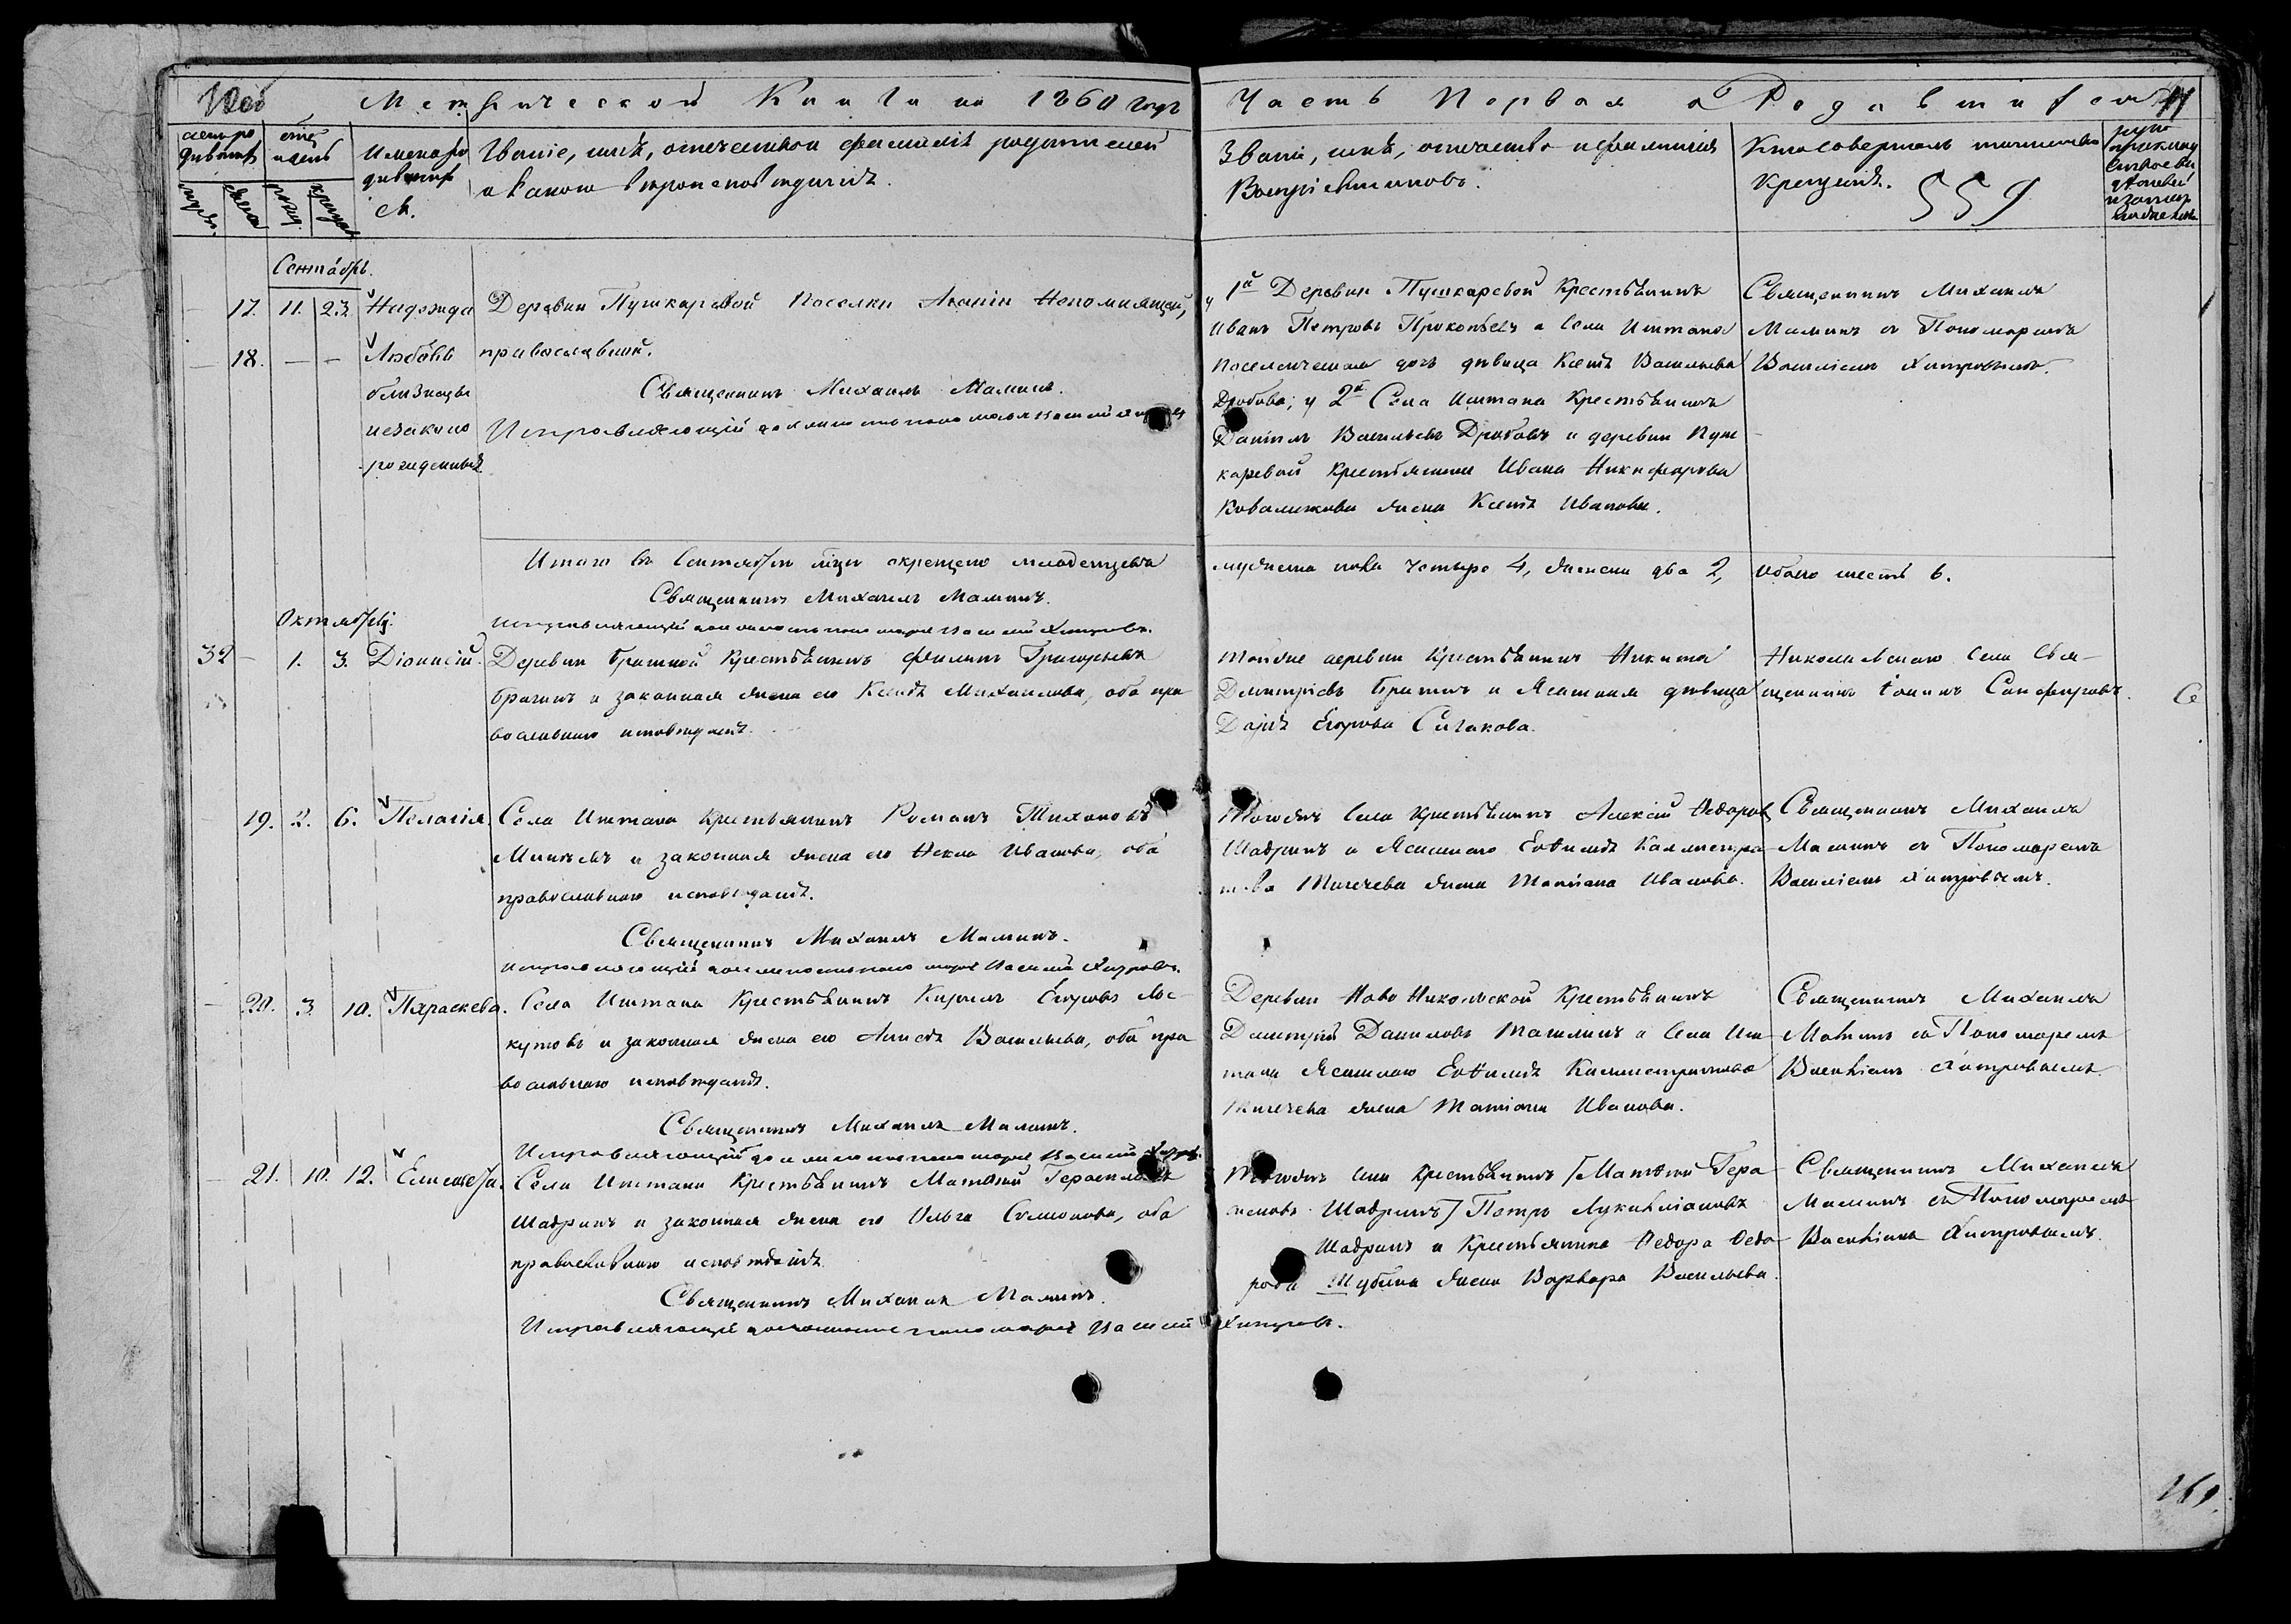 Метрической Книги на 1860 годъ
Часть Первая о Родившихся
Имена родившихся.
Званіе, имя, отечество и фамилія родителей
и какого вѣроисповѣданія.
Званіе, имя, отечество и фамилія
Воспріемниковъ.
Кто совершалъ таинство
Крещенія.
559
Сентябрь.
17. 11. 23. Надежда
18. — — Любовь
близнецы
незаконо
рожденныя
Деревни Пушкаревой Поселки Непомнящей,
православной.
Священникъ Михаилъ Малинъ.
Исправляющій должность пономаря Василій
у 1й Деревни Пушкаревой Крестьянинъ
Иванъ Петровъ Прокопьевъ и Села Иштана
поселенческая дочь дѣвица Ксенія Васильева
Дробова; у 2й Села Иштана Крестьянинъ
Даніилъ Васильевъ Дробовъ и деревни Пуш
каревой Крестьянина Ивана Никифорова
жена Ксенія Иванова.
Священникъ Михаилъ
Малинъ съ Пономаремъ
Василіемъ Хитровымъ.
Итого въ Сентябрѣ мцѣ окрещено младенцевъ
мужеска пола четыре 4, женска два 2, обоего шесть 6.
Священникъ Михаилъ Малинъ.
Исправляющій должность пономаря Василій Хитровъ.
Октябрь.
32 — 1. 3. Діонисій.
Деревни Брагиной Крестьянинъ Филипъ Григорьевъ
Брагинъ и законная жена его Ксенія Михаилова, оба пра
вославнаго исповѣданія.
Тойже деревни Крестьянинъ Никита
Дмитріевъ Брагинъ и Ясашная дѣвица
Дарія Егорова Сигакова.
Николаевскаго Села Свя-
щенникъ Іоаннъ Санфировъ.
19. 2. 6. Пелагія.
Села Иштана Крестьянинъ Романъ Тихоновъ
и законная жена его Ѳекла Иванова, оба
православнаго исповѣданія.
Священникъ Михаилъ Малинъ.
Исправляющій должность пономаря Василій Хитровъ.
Тогоже Села Крестьянинъ Алексій Ѳедоровъ
Шадринъ и Ясашнаго Евѳимія Каллистра
това Тигечева жена Татіана Иванова.
Священникъ Михаилъ
Малинъ съ Пономаремъ
Василіемъ Хитровымъ.
20. 3. 10. Параскева.
Села Иштана Крестьянинъ Кирилъ Егоровъ Лос-
кутовъ и законная жена его Анисія Васильева, оба пра
вославнаго исповѣданія.
Священникъ Михаилъ Малинъ.
Исправляющій должность пономаря Василій Хитровъ.
Деревни Ново Никольской Крестьянинъ
Дмитрій Даниловъ Ташлинъ и Села Иш-
тана Ясашнаго Евѳимія Каллистратова
Тигечева жена Татіана Иванова.
Священникъ Михаилъ
Малинъ съ Пономаремъ
Василіемъ Хитровымъ.
21. 10. 12. Елисавета.
Села Иштана Крестьянинъ Матѳій Герасимовъ
Шадринъ и законная жена его Ольга Симонова, оба
православнаго исповѣданія.
Священникъ Михаилъ Малинъ.
Исправляющій должность пономаря Василій Хитровъ.
Тогоже Села Крестьянинъ [Матѳій Гера
симовъ Шадринъ] Петръ Лукиліановъ
Шадринъ и Крестьянина Ѳедора Ѳедо
рова Шубина жена Варвара Васильева.
Священникъ Михаилъ
Малинъ съ Пономаремъ
Василіемъ Хитровымъ.